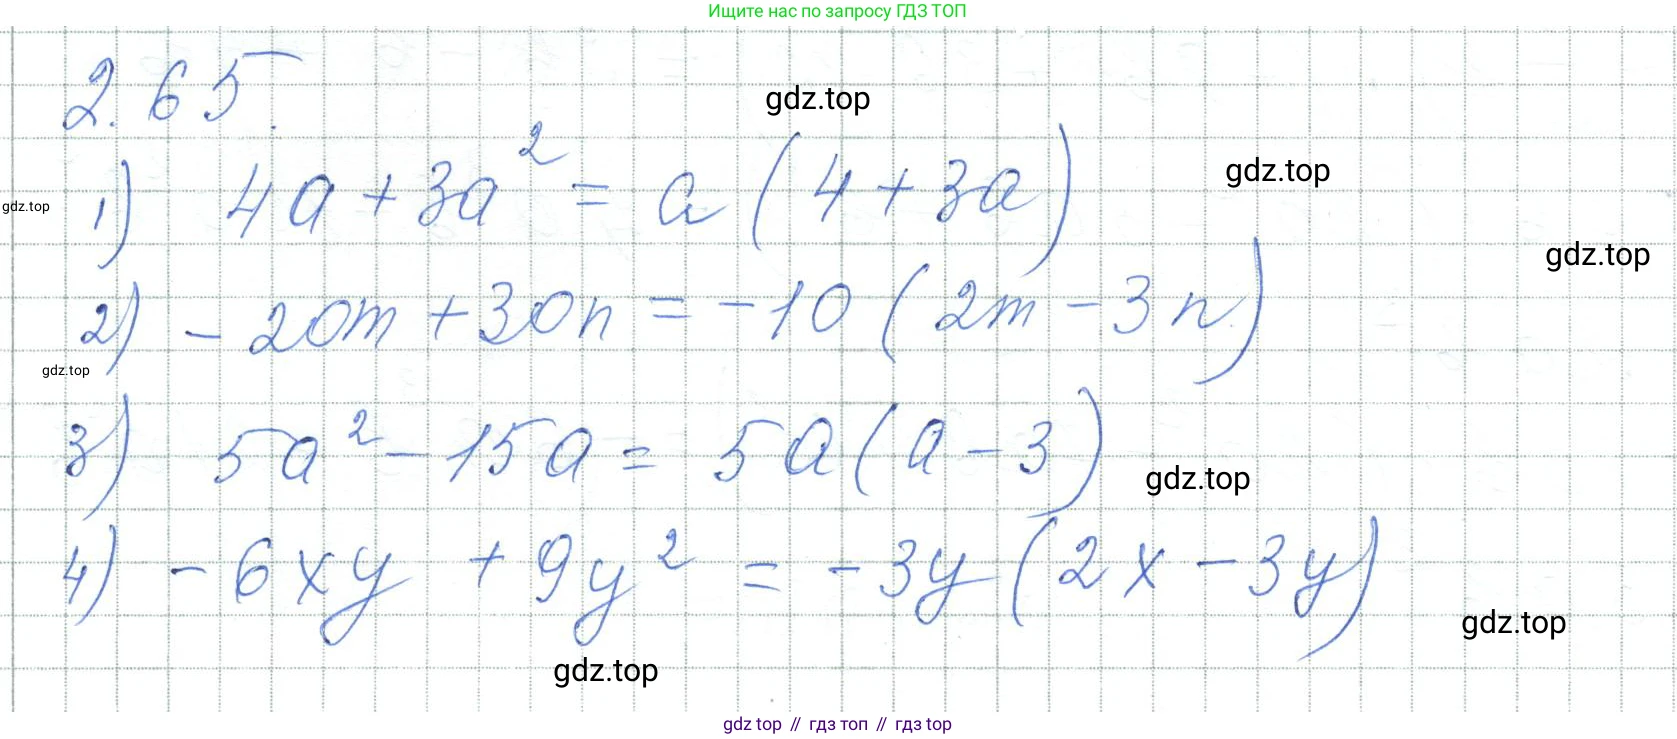 Ищите нас по запросу ГДЗ ТОП
2.65.
gdz.top
1) 4a + 3a² = a (4 + 3a)
gdz.top
gdz.top
gdz.top
2) - 20m + 30n = - 10 (2m - 3n)
gdz.top
3) 5a² - 15a = 5a (a - 3)
gdz.top
4) - 6xy + 9y² = - 3y (2x - 3y)
gdz.top
gdz.top
gdz top // гдз топ // гдз top